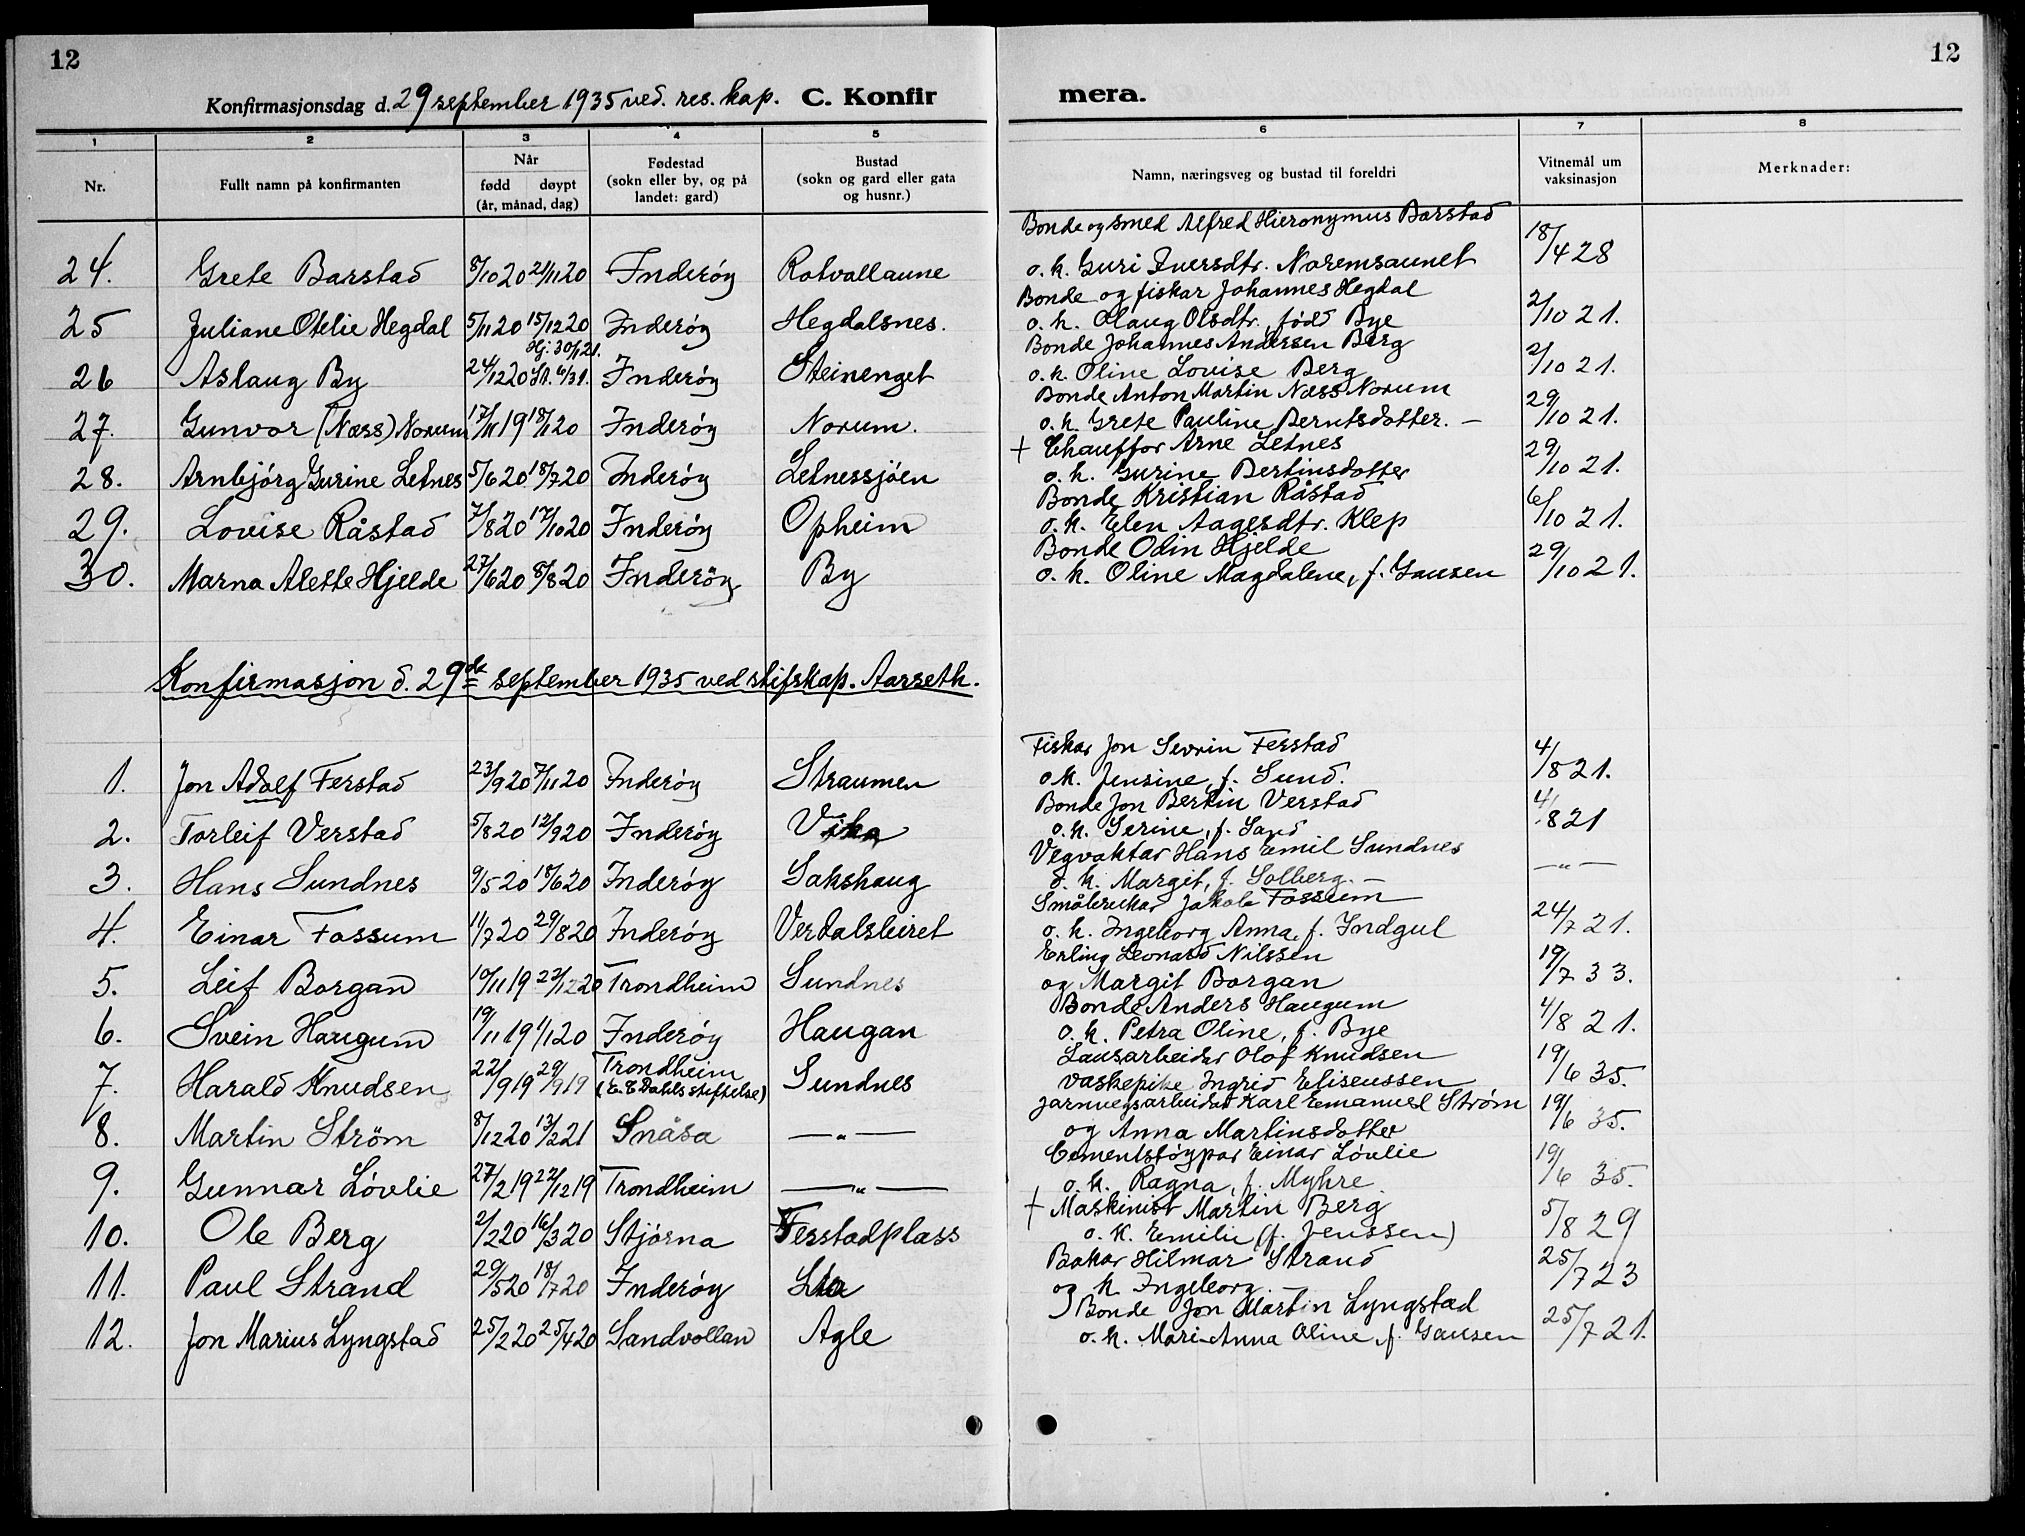 12
12
Konfirmasjonsdag d. 29 september 1935 ved. res. kap. C. Konfir mera.
1 2 3 4 5 6 7 8
Nr. Fullt namn på konfirmanten Når fødd døypt (år, månad, dag) Fødestad (sokn eller by, og på landet: gard) Bustad (sokn og gard eller gata og husnr.) Namn, næringsveg og bustad til foreldri Vitnemål um vaksinasjon Merknader:
Bonde og smed Alfred Hieronymus Barstad
24. Grete Barstad 8/10 20 21/11 20 Inderøy Rotvollaune o. h. Guri Iversdtr. Noremsaunet 18/4 28
Bonde og fiskar Johannes Hegdal
25 Juliane Otelie Hegdal 5/11 20 15/12 20 Inderøy Hegdalsnes. o. h. Olaug Olsdtr., fødd Bye 2/10 21.
Hj. 30/1 21. Bonde Johannes Andersen Berg
26 Aslaug By 24/12 20 St. 6/3 1. Inderøy Steinenget o. h. Oline Lovise Berg 2/10 21.
Bonde Anton Martin Næss Norum
27. Gunvor (Næss) Norum 17/11 19 18/1 20 Inderøy Norum. o. h. Grete Pauline Berntsdotter. — 29/10 21.
+ Chauffør Arne Letnes
28. Arnbjørg Gurine Letnes 5/6 20 18/7 20 Inderøy Letnessjøen o. h. Gurine Bertinsdotter 29/10 21.
Bonde Kristian Råstad
29. Lovise Råstad 7/8 20 17/10 20 Inderøy Opheim o. h. Elen Aagesdtr. Klep 6/10 21.
Bonde Odin Hjelde
30. Marna Alette Hjelde 27/6 20 8/8 20 Inderøy By o. h. Oline Magdalene, f. Gausen 29/10 21.
Konfirmasjon d. 29de september 1935 ved stifskap. Aarseth.
Fiskar Jon Sevrin Ferstad
1. Jon Adolf Ferstad 23/9 20 7/11 20 Inderøy Straumen o. h. Jensine, f. Sund. 4/8 21.
Bonde Jon Bertin Verstad
2. Torleif Verstad 5/8 20 12/9 20 Inderøy Vika o. h. Serine, f. Sand 4/8 21
Vegvaktar Hans Emil Sundnes
3. Hans Sundnes 9/5 20 18/6 20 Inderøy Sakshaug o. h. Margit, f. Solberg. — — " —
Småbrukar Jakob Fossum
4. Einar Fossum 11/7 20 29/8 20 Inderøy Verdalsleiret o. h. Ingeborg Anna, f. Indgul 24/7 21.
Erling Leonard Nilssen
5. Leif Borgan 10/11 19 27/12 20 Trondheim Sundnes og Margit Borgan 19/7 33.
Bonde Anders Haugum
6. Svein Haugum 19/11 19 1/1 20 Inderøy Haugan o. h. Petra Oline, f. Bye 4/8 21.
Lausarbeidar Olof Knudsen
7. Harald Knudsen 22/9 19 29/9 19 Trondheim (E. C. Dahls stiftelse) Sundnes vaskepike Ingrid Eliseussen 19/6 35.
Jarnvegsarbeidar Karl Emanuel Strøm
8. Martin Strøm 8/12 20 13/2 21 Snåsa — " — og Anna Martinsdotter 19/6 35.
Cementstøypar Einar Løvlie
9. Gunnar Løvlie 27/2 19 22/12 19 Trondheim — " — o. h. Ragna, f. Myhre 19/6 35.
+ Maskinist Martin Berg
10. Ole Berg 2/2 20 16/3 20 Stjørna Ferstadplass o. h. Emilie (f. Jenssen) 5/8 29
Bakar Hilmar Strand
11. Paul Strand 29/5 20 18/7 20 Inderøy og h. Ingeborg. 25/7 23
Bonde Jon Martin Lyngstad
12. Jon Marius Lyngstad 25/2 20 25/4 20 Sandvollan Agle o. h. Mari-Anna Oline f. Gausen 25/7 21.